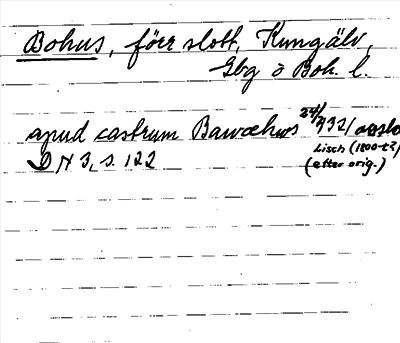 Bohus, förr slott, Kungälv,
Gbg o Boh. l.
apud castrum Bawæhws 24/7 1321 avslo
Lisch (1800-t?)
DN 3, s. 122
(efter orig.)